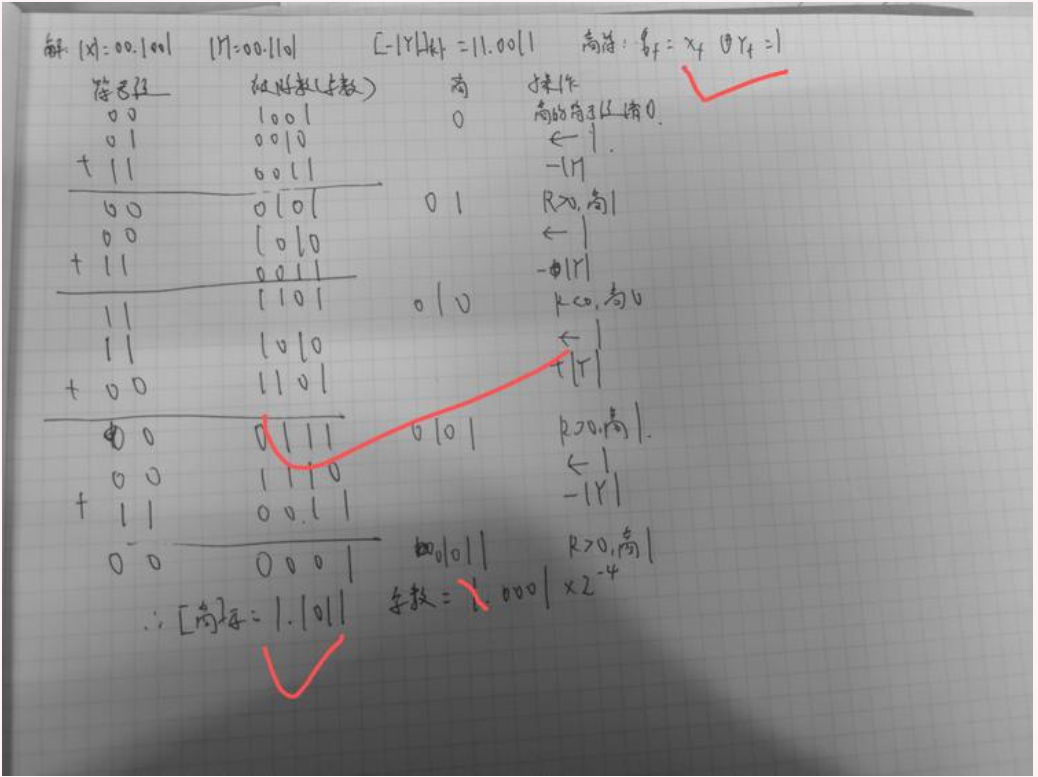 解: |X|=00.1001 |Y|=00.1101 [-|Y|]补=11.0011 商符: qf = xf ⊕ Yf =1
符号位 被除数(余数) 商 操作
00 1001 0 商的符号位清0.
01 0010 ←1.
+ 11 0011 -|Y|
00 0101 01 R>0,商1
00 1010 ←1
+ 11 0011 -|Y|
11 1101 010 R<0,商0
11 1010 ←1
+ 00 1101 +|Y|
00 0111 0101 R>0,商1.
00 1110 ←1
+ 11 00.11 -|Y|
00 0001 01011 R>0,商1
∴[商]原=1.1011 余数=1.0001×2⁻⁴